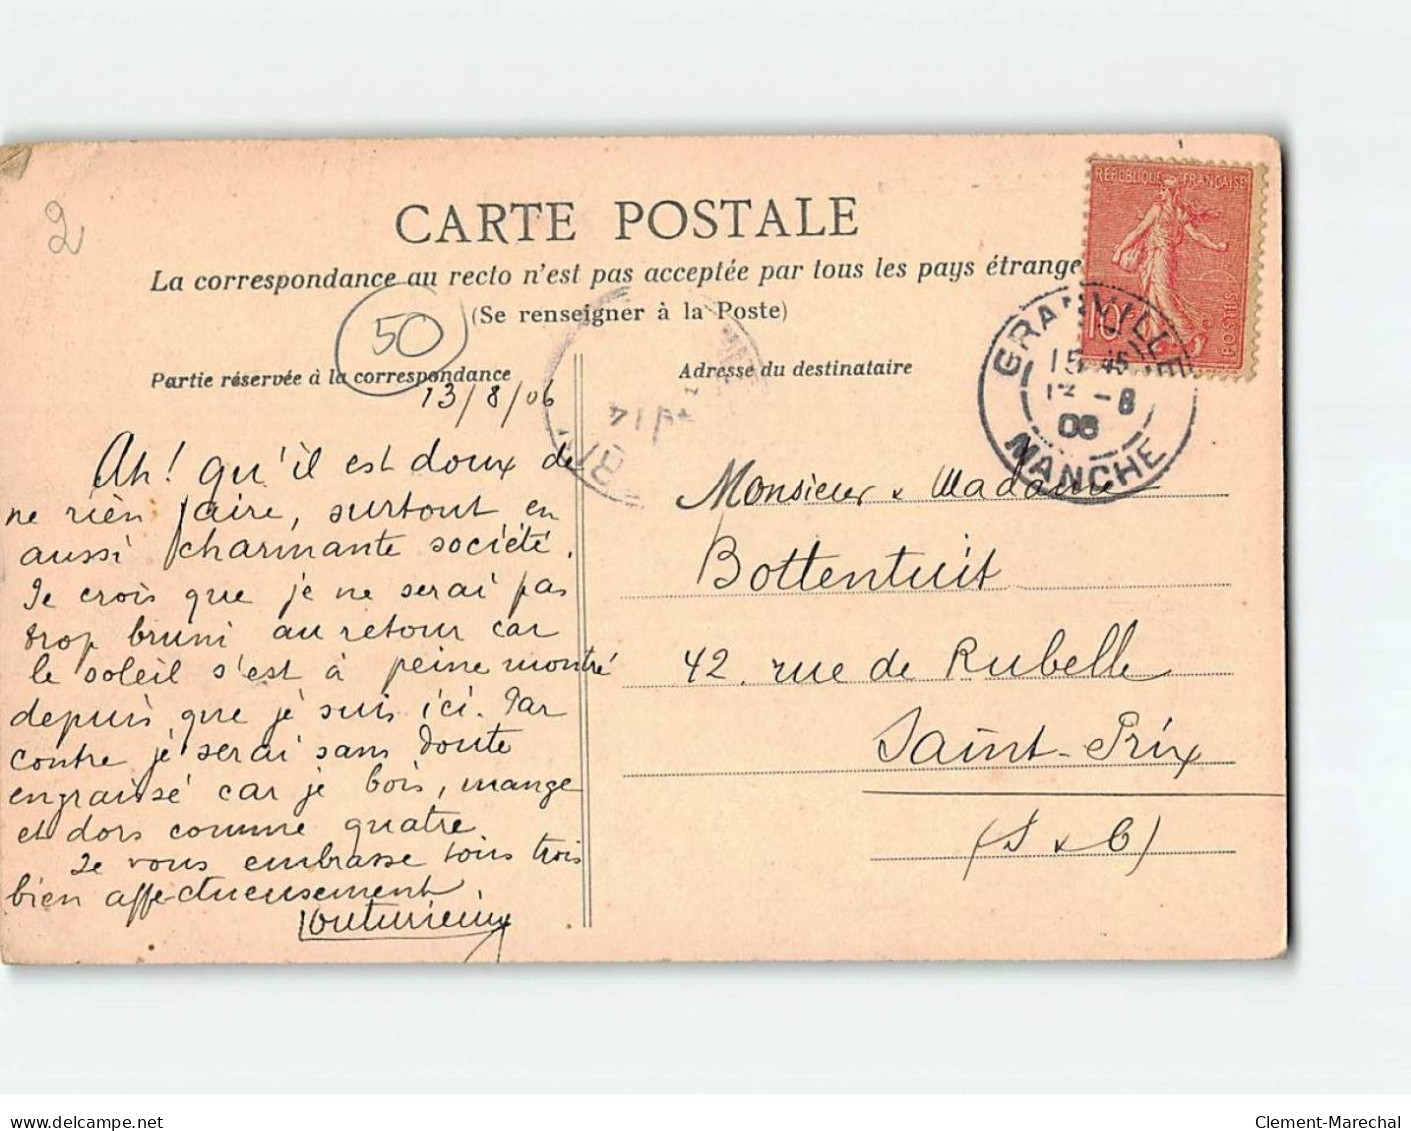 2
CARTE POSTALE
La correspondance au recto n'est pas acceptée par tous les pays étrange
(Se renseigner à la Poste)
50
Partie réservée à la correspondance
Adresse du destinataire
RÉPUBLIQUE FRANÇAISE
10
POSTES
GRANVILLE
15 45
13 -8
06
MANCHE
14
13/8/06
Ah! qu'il est doux de
ne rien faire, surtout en
aussi charmante société.
Je crois que je ne serai pas
trop bruni au retour car
le soleil s'est à peine montré
depuis que je suis ici. Par
contre je serai sans doute
engraissé car je bois, mange
et dors comme quatre.
Je vous embrasse tous trois
bien affectueusement.
Monsieur & Madame
Bottentuit
42. rue de Rubelle
Saint-Prix
(S & O)
delcampe.net
Clement-Marechal